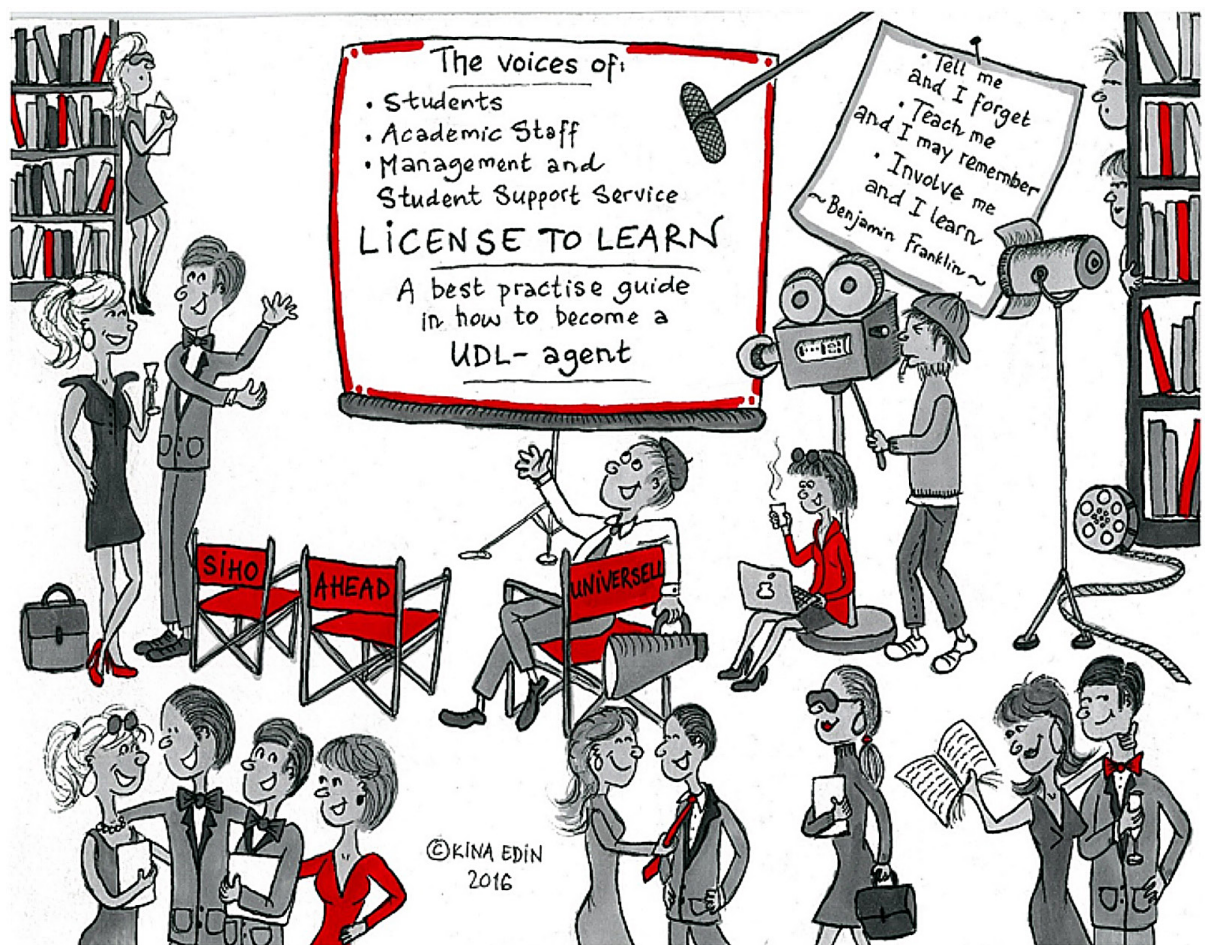 The voices of:
• Students
• Academic Staff
• Management and
Student Support Service
LiCENSE TO LEARN
A best practise guide
in how to become a
UDL- agent
• Tell me
and I forget
• Teach me
and I may remember
• Involve me
and I learn
~Benjamin Franklin~
SiHO
AHEAD
UNiVERSELL
©KINA EDIN
2016